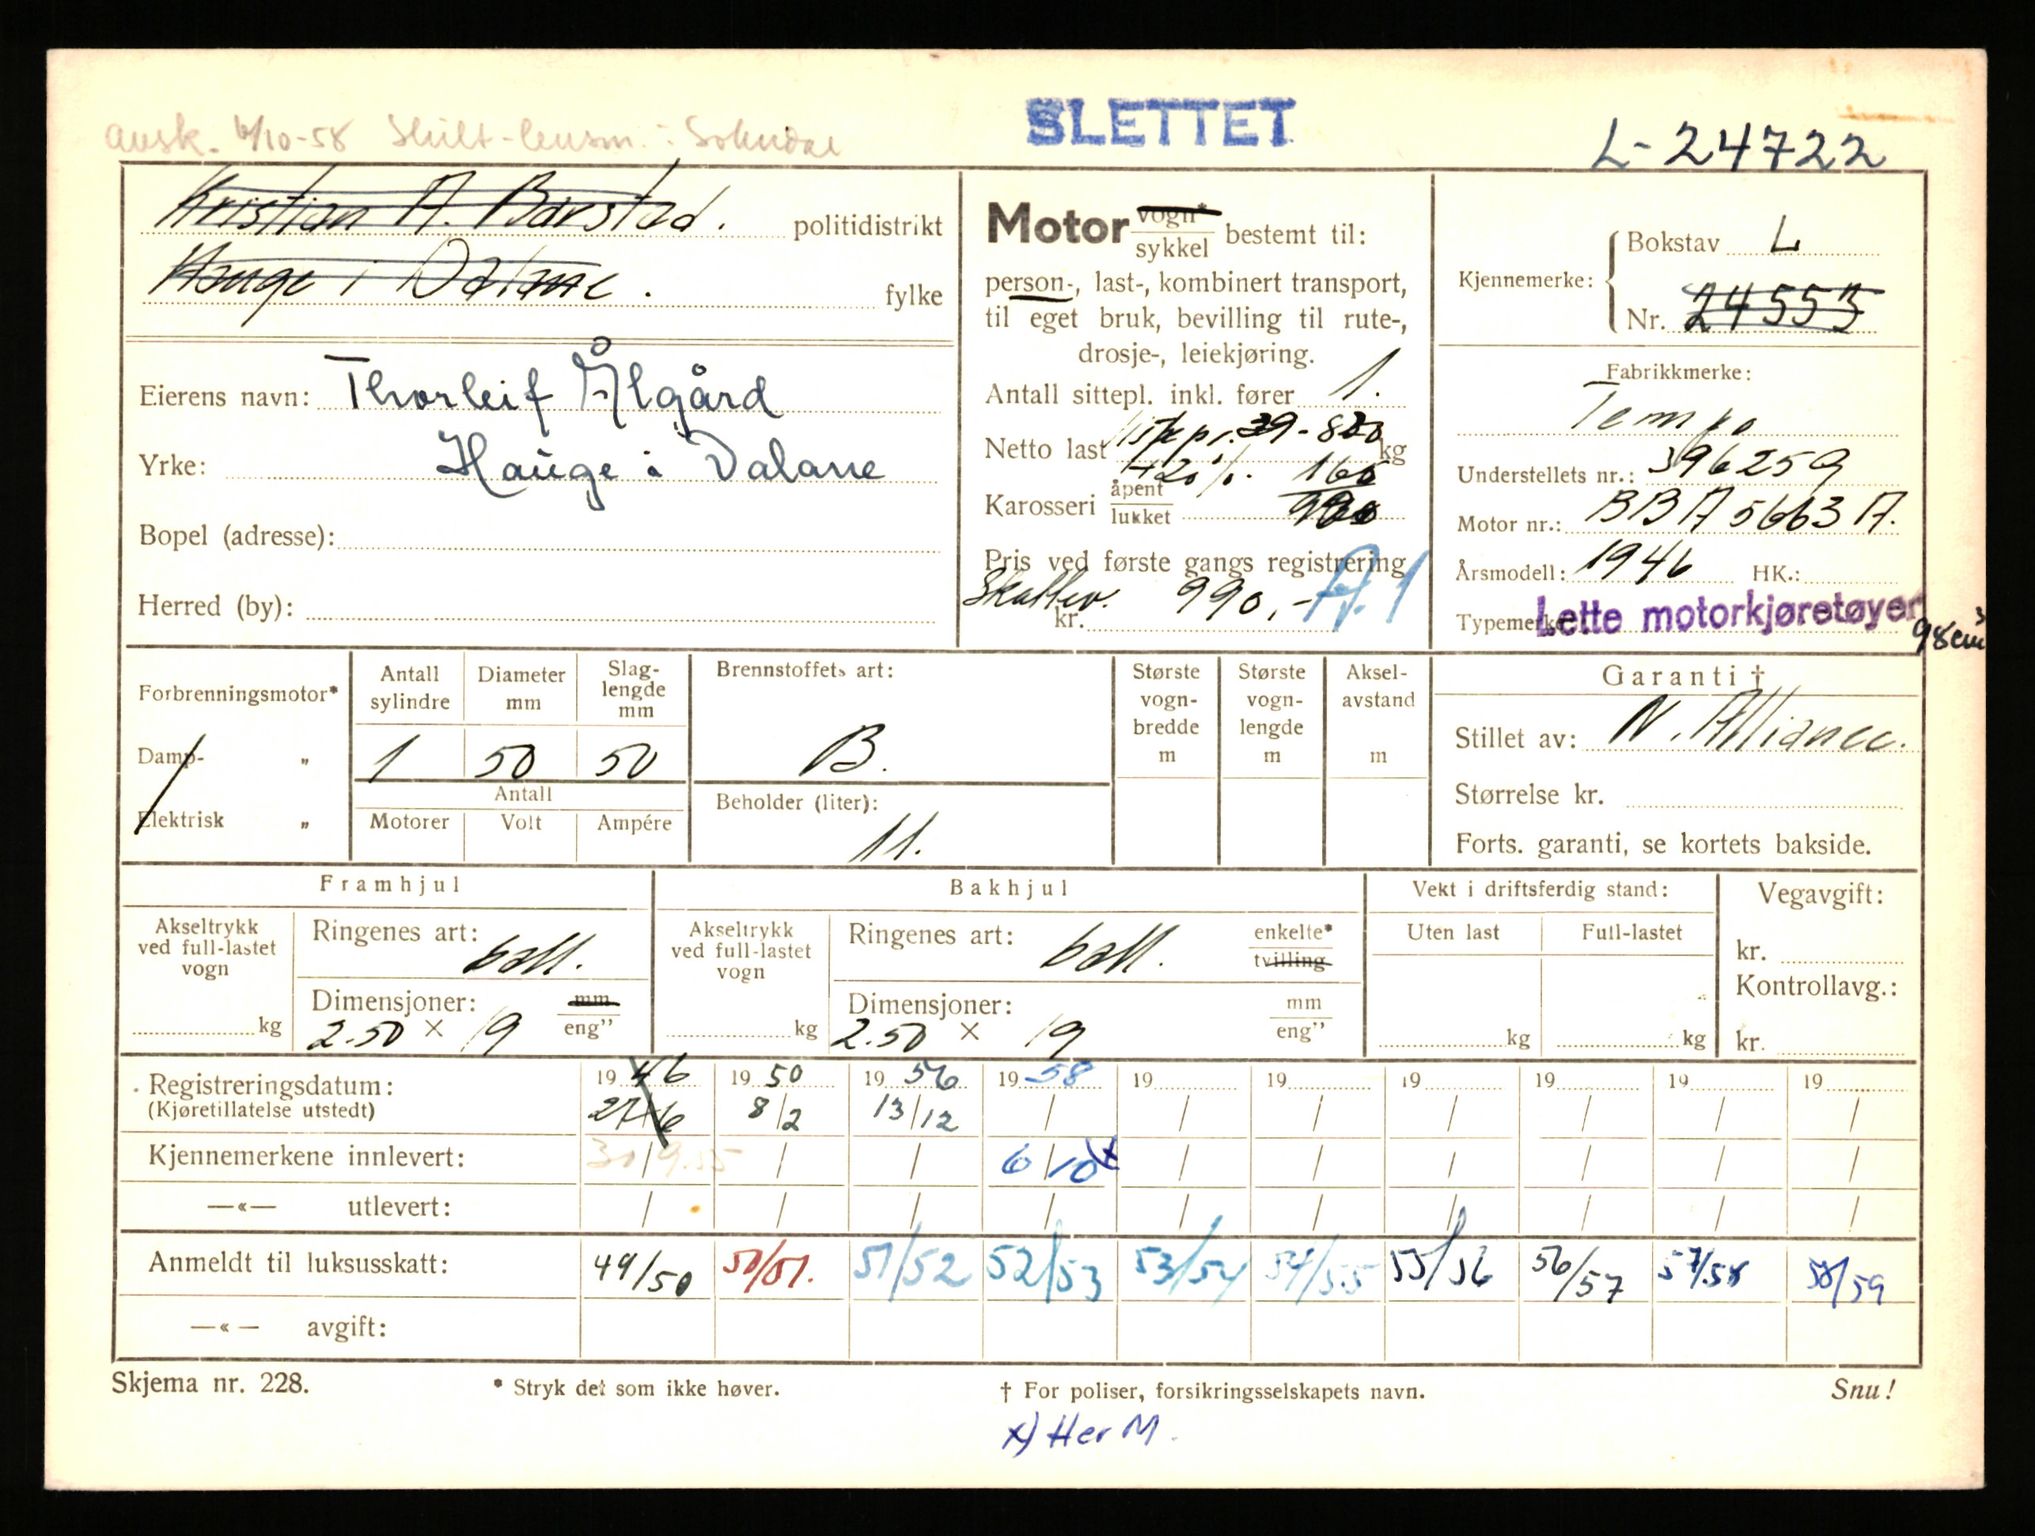 SLETTET
avsk. 6/10-58 Skilt-lensm. i Sokndal
L-24722
Kristian A. Barstad. politidistrikt
Hauge i Dalane. fylke
Eierens navn: Thorleif Ålgård
Yrke: Hauge i Dalane
Bopel (adresse):
Herred (by):
Motor vogn*
sykkel bestemt til:
person-, last-, kombinert transport,
til eget bruk, bevilling til rute-,
drosje-, leiekjøring.
Antall sittepl. inkl. fører 1.
Netto last pr. 39- kg
+20%
Karosseri åpent
lukket
Pris ved første gangs registrering
Skattev. 990,- A.1
kr.
Kjennemerke: Bokstav L
Nr. 24553
Fabrikkmerke:
Tempo
Understellets nr.: 396259
Motor nr.: BBA 5663 A.
Årsmodell: 1946 HK.:
Typemerke: Lette motorkjøretøyer
98 cm³
Forbrenningsmotor*
Damp- „
Elektrisk „
Antall sylindre
Diameter mm
Slag-lengde mm
1 50 50
Antall
Motorer Volt Ampére
Brennstoffets art:
B.
Beholder (liter):
11.
Største vogn-bredde m
Største vogn-lengde m
Aksel-avstand m
Garanti †
Stillet av: N. Alliance.
Størrelse kr.
Forts. garanti, se kortets bakside.
Framhjul
Akseltrykk ved full-lastet vogn
kg
Ringenes art: ball.
Dimensjoner: mm
2.50 × 19 eng"
Bakhjul
Akseltrykk ved full-lastet vogn
kg
Ringenes art: ball. enkelte*
tvilling
Dimensjoner: mm
2.50 × 19 eng"
Vekt i driftsferdig stand:
Uten last Full-lastet
kg kg
Vegavgift:
kr.
Kontrollavg.:
kr.
Registreringsdatum: 19 46 19 50 19 56 19 58 19 19 19 19 19 19
(Kjøretillatelse utstedt) 27/6 8/2 13/12 / / / / / / /
Kjennemerkene innlevert: 30/9.55 / / 6/10 x / / / / / /
—«— utlevert: / / / / / / / / / /
Anmeldt til luksusskatt: 49/50 50/51. 51/52 52/53 53/54 54/55 55/56 56/57 57/58 58/59
—«— avgift:
Skjema nr. 228.
* Stryk det som ikke høver.
† For poliser, forsikringsselskapets navn.
Snu!
x) Her M.